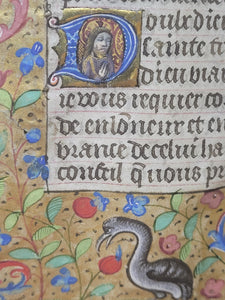 Doulz dieu
sainte tri
dieu biau
ie vous requier co
de en lonneur et en
brance de celui ha
conseil q̃ vous pr